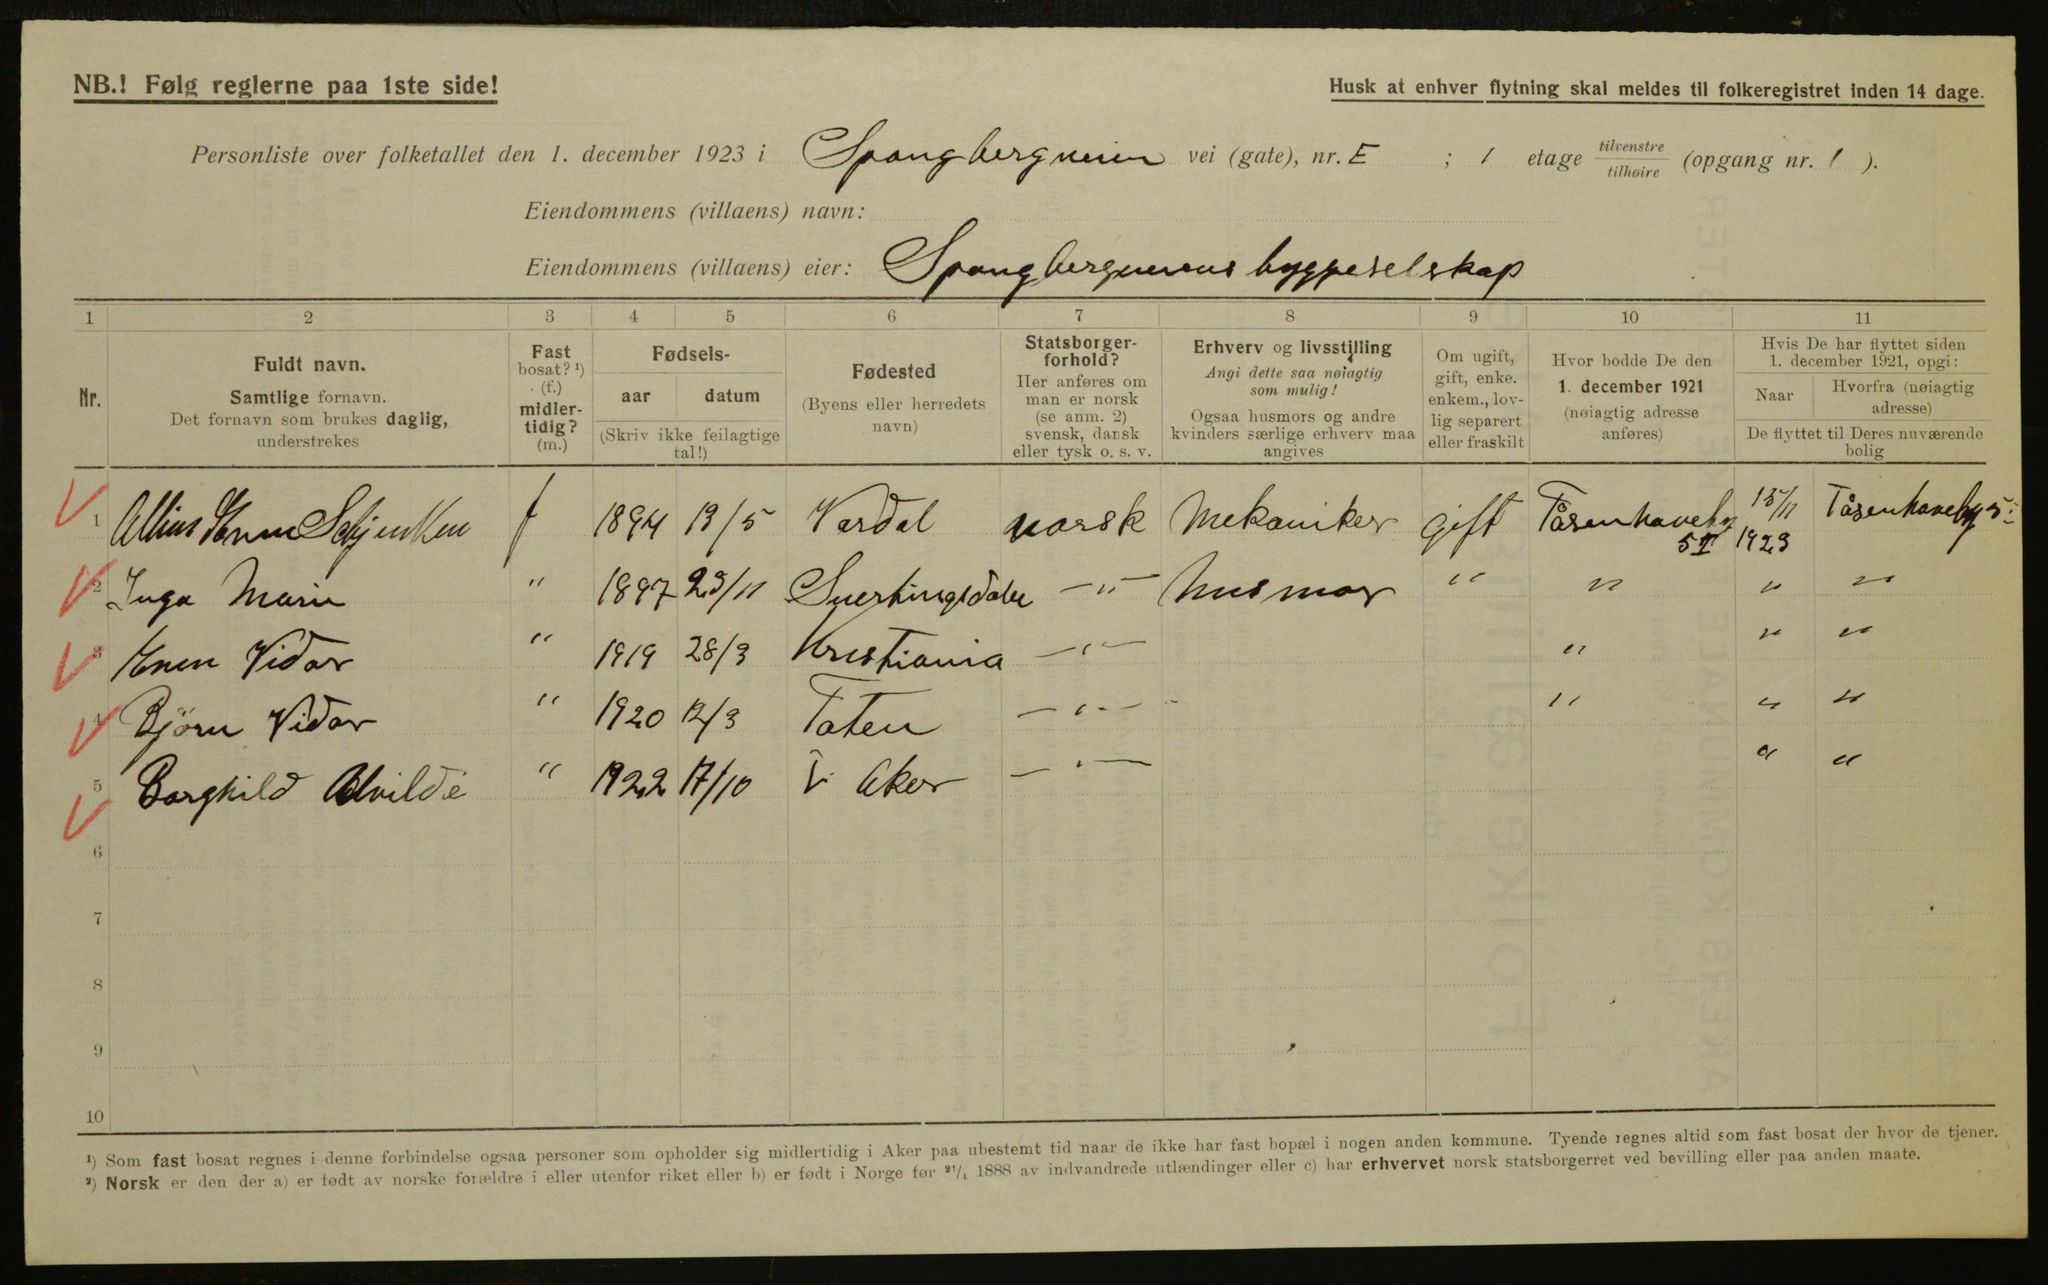 NB.! Følg reglerne paa 1ste side!
Husk at enhver flytning skal meldes til folkeregistret inden 14 dage.
Personliste over folketallet den 1. december 1923 i Spangbergveien vei (gate), nr. E ; 1 etage tilvenstre / tilhøire (opgang nr. 1 ).
Eiendommens (villaens) navn:
Eiendommens (villaens) eier: Spangbergveiens byggeselskap
1 2 3 4 5 6 7 8 9 10 11
Nr.
Fuldt navn.
Samtlige fornavn.
Det fornavn som brukes daglig, understrekes
Fast bosat? ¹) (f.) midler-tidig? (m.)
Fødsels-
aar datum
(Skriv ikke feilagtige tal!)
Fødested
(Byens eller herredets navn)
Statsborger-forhold?
Her anføres om man er norsk (se anm. 2) svensk, dansk eller tysk o. s. v.
Erhverv og livsstilling
Angi dette saa nøiagtig som mulig!
Ogsaa husmors og andre kvinders særlige erhverv maa angives
Om ugift, gift, enke. enkem., lov-lig separert eller fraskilt
Hvor bodde De den 1. december 1921 (nøiagtig adresse anføres)
Hvis De har flyttet siden 1. december 1921, opgi:
Naar Hvorfra (nøiagtig adresse)
De flyttet til Deres nuværende bolig
1 f 1894 13/5 Vardal norsk Mekaniker gift Tåsenhaveby 15/11 1923 Tåsenhaveby
2 Inga Marie " 1897 23/11 Snertingsdalen —"— Husmor " " " "
3 Vidar " 1919 28/3 Kristiania —"— " " "
4 Bjørn Vidar " 1920 12/3 Toten —"— " " "
5 Borghild Alvilde " 1922 17/10 V Aker —"— " "
6
7
8
9
10
¹) Som fast bosat regnes i denne forbindelse ogsaa personer som opholder sig midlertidig i Aker paa ubestemt tid naar de ikke har fast bopæl i nogen anden kommune. Tyende regnes altid som fast bosat der hvor de tjener.
²) Norsk er den der a) er født av norske forældre i eller utenfor riket eller b) er født i Norge før ²¹/₄ 1888 av indvandrede utlændinger eller c) har erhvervet norsk statsborgerret ved bevilling eller paa anden maate.